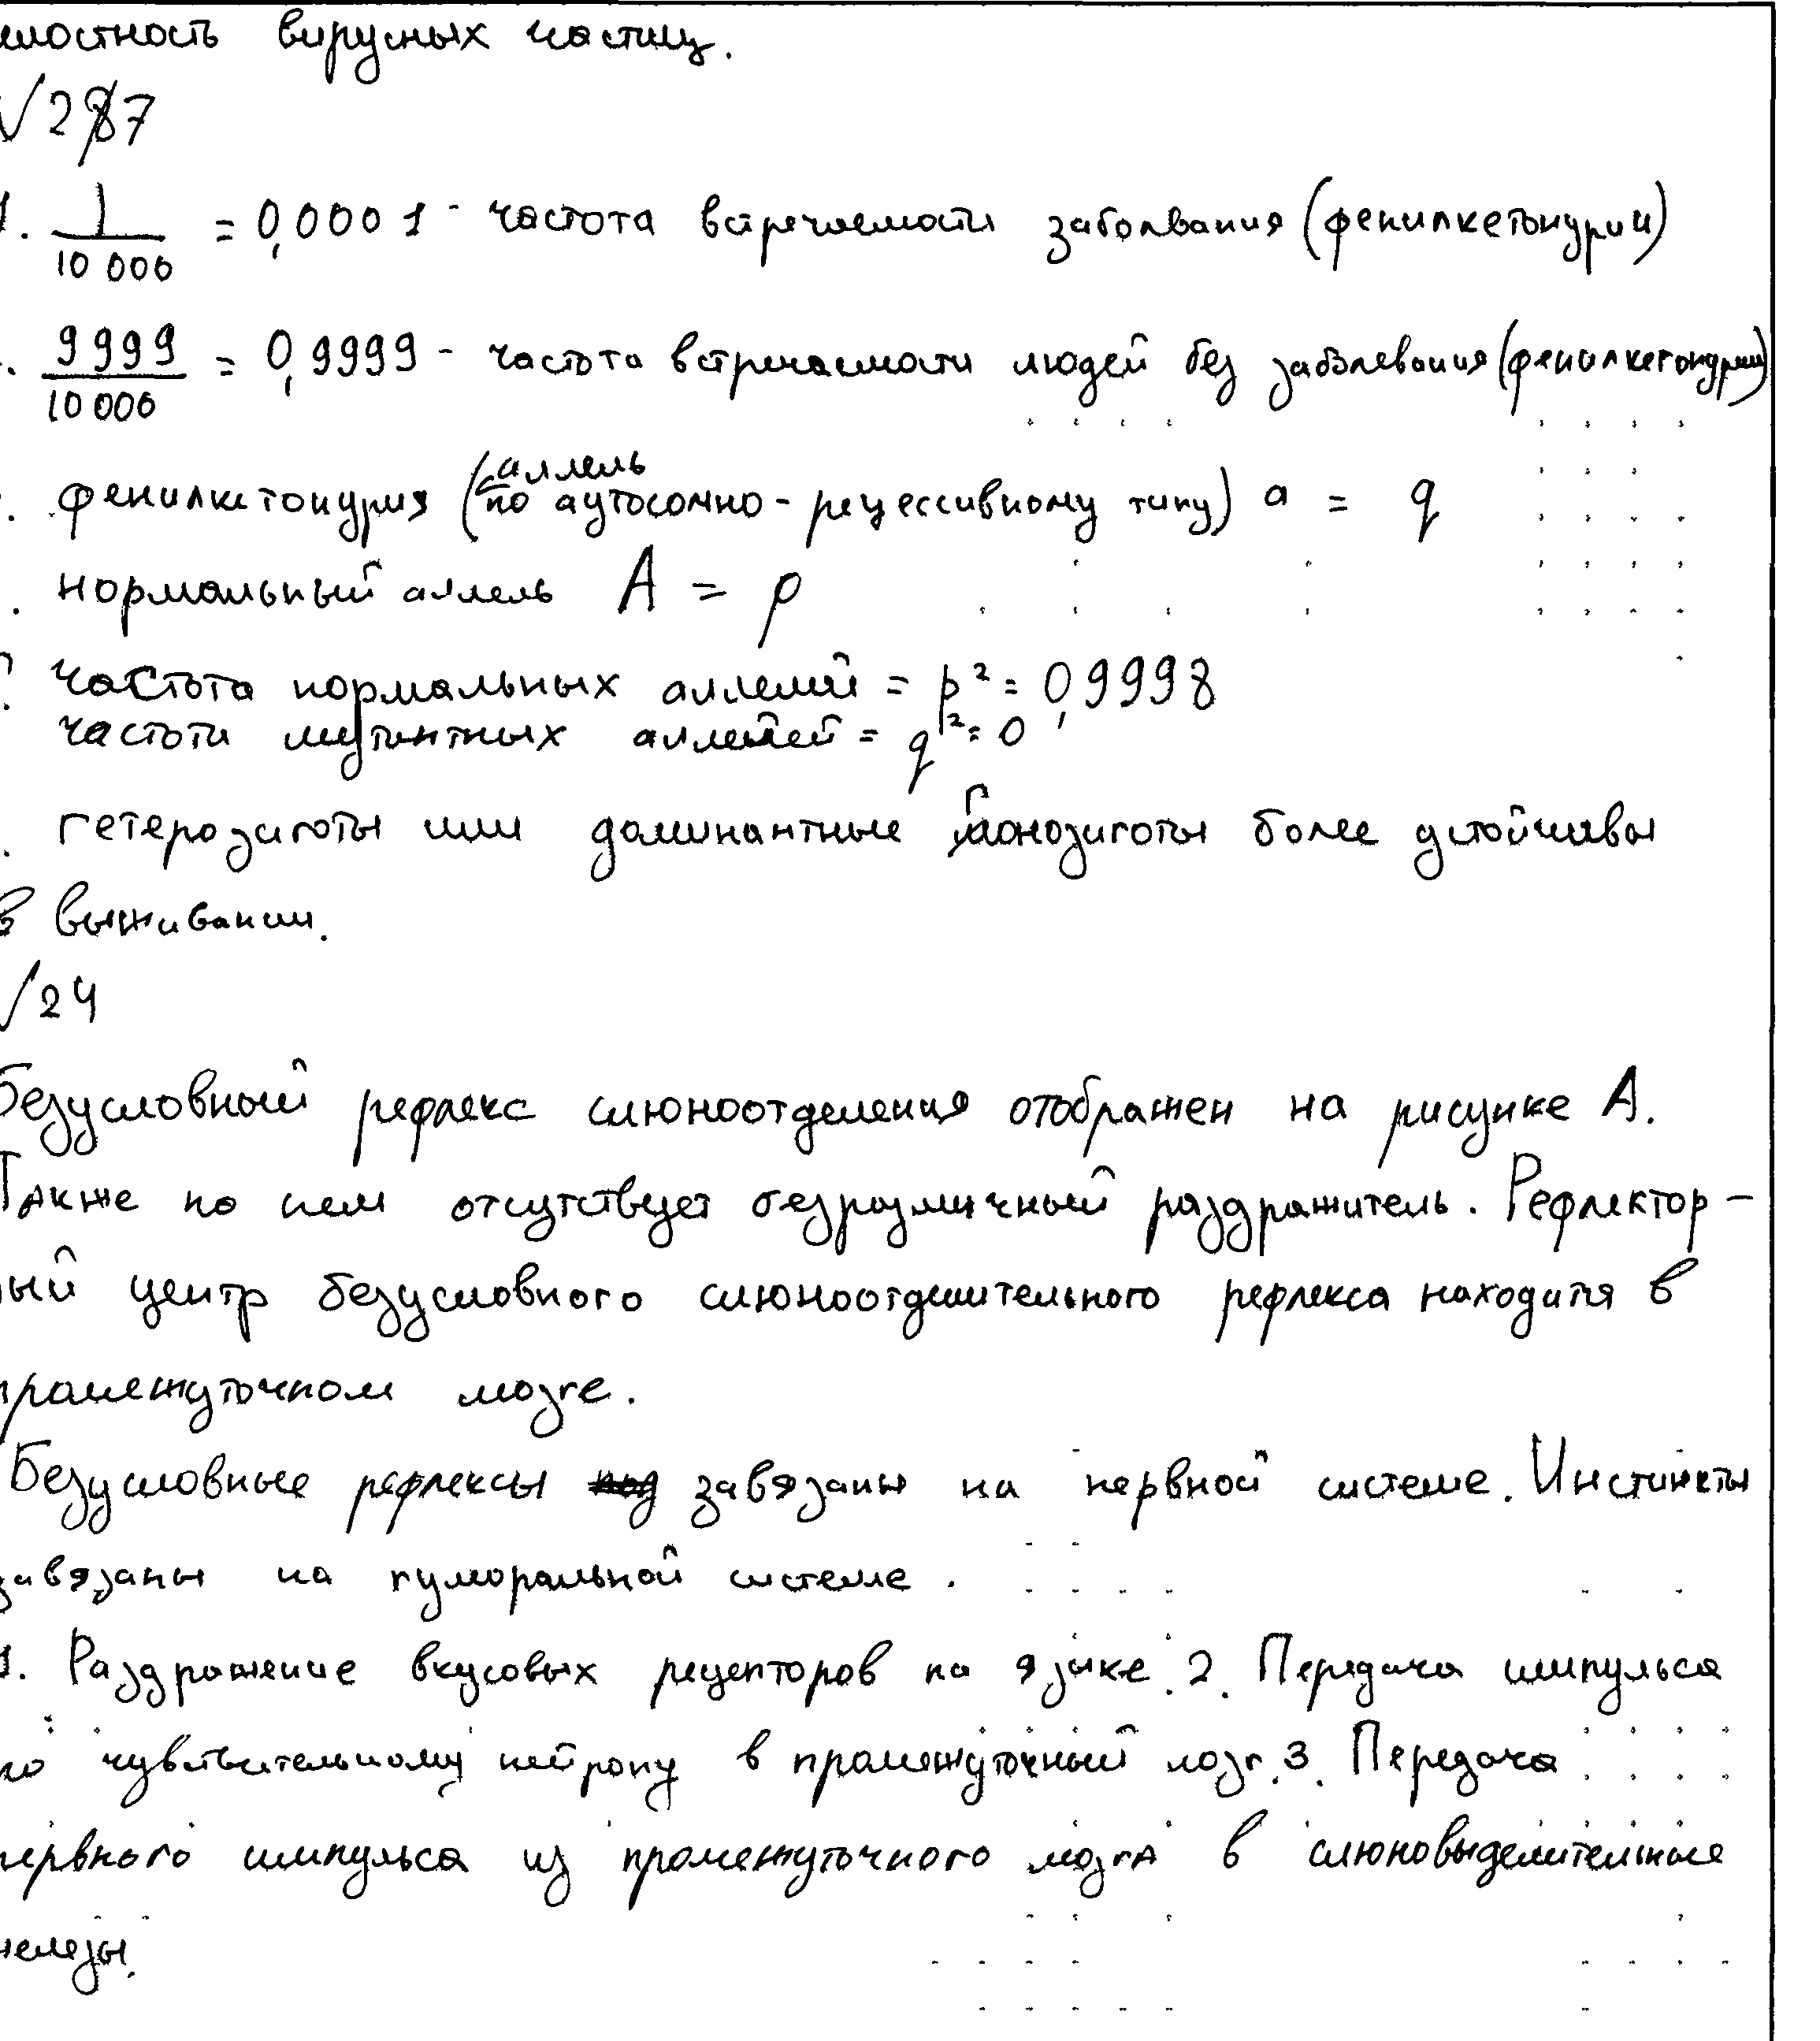 лостность вирусных частиц.
√287
1. 1/10 000 = 0,0001 - частота встречаемости заболвания (фенилкетонурии)
. 9999/10 000 = 0,9999 - частота встречаемости людей без заболевания (фенилкетонурии)
аллель
. фенилкетонурия (по аутосомно-рецессивному типу) a = q
. нормальный аллель A = p
. частота нормальных аллелей = p² = 0,9998
частоти мутантных аллелей = q² = 0
. гетерозиготы или доминантные гомозиготы более устойчивы
в выживании.
√24
Безусловный рефлекс слюноотделения отображен на рисунке А.
Также на нем отсутствует безразличный раздражитель. Рефлектор-
ный центр безусловного слюноотделительного рефлекса находится в
промежуточном мозге.
Безусловные рефлексы завязаны на нервной системе. Инстинкты
завязаны на гуморальной системе.
1. Раздражение вкусовых рецепторов на языке. 2. Передача импульса
по чувствительному нейрону в промежуточный мозг. 3. Передача
нервного импульса из промежуточного мозга в слюновыделительные
железы.